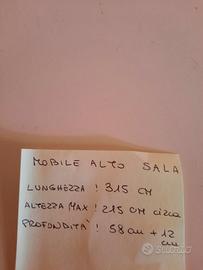 MOBILE ALTO SALA
LUNGHEZZA : 315 CM
ALTEZZA MAX : 215 CM circa
PROFONDITA' : 58 cm + 12
cm
subito